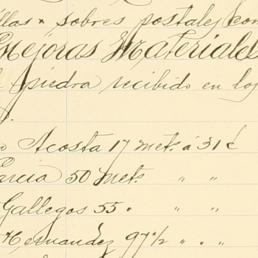 sobres postales con
Mejoras Materiales
piedra recibido en los
Acosta 17 mets. á 31 ¢
García 50 mets. " "
Gallegos 55 " " "
Hernandez 97½ " " "